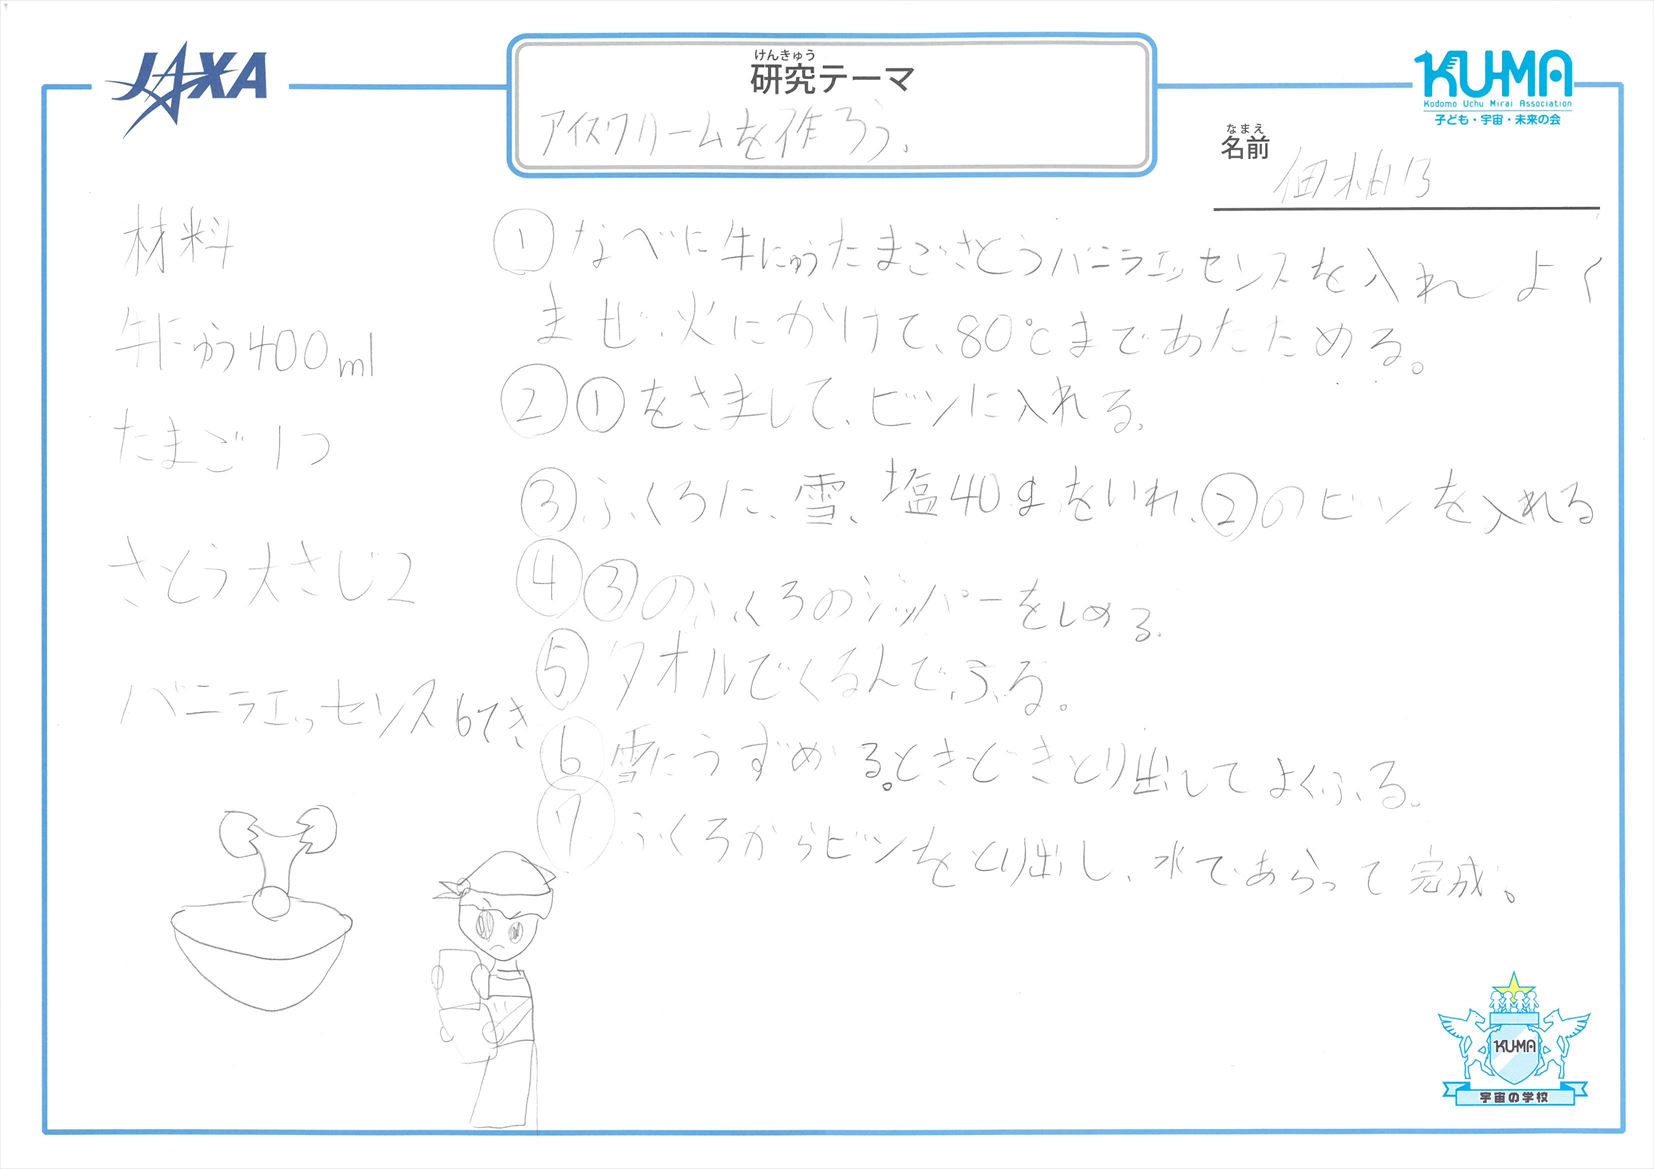 JAXA
けんきゅう
研究テーマ
アイスクリームを作ろう。
KU-MA
Kodomo Uchu Mirai Association
子ども・宇宙・未来の会
なまえ
名前
材料
牛にゅう400ml
たまご1つ
さとう大さじ2
バニラエッセンス6てき
① なべに牛にゅうたまごさとうバニラエッセンスを入れ よく
まぜ、火にかけて、80℃まであたためる。
② ①をさまして、ビンに入れる。
③ ふくろに、雪、塩40gをいれ、②のビンを入れる
④ ③のふくろのジッパーをしめる。
⑤ タオルでくるんで、ふる。
⑥ 雪にうずめる。ときどきとり出してよくふる。
⑦ ふくろからビンをとり出し、水であらって完成。
KU-MA
宇宙の学校